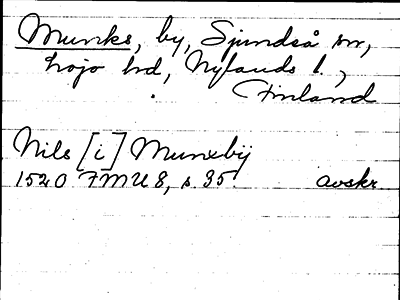 Munks, by, Sjundså sn,
Lojo hd, Nylands l.,
Finland
Nils [i] Munxbij
1520 FMU 8, s. 35. avskr.